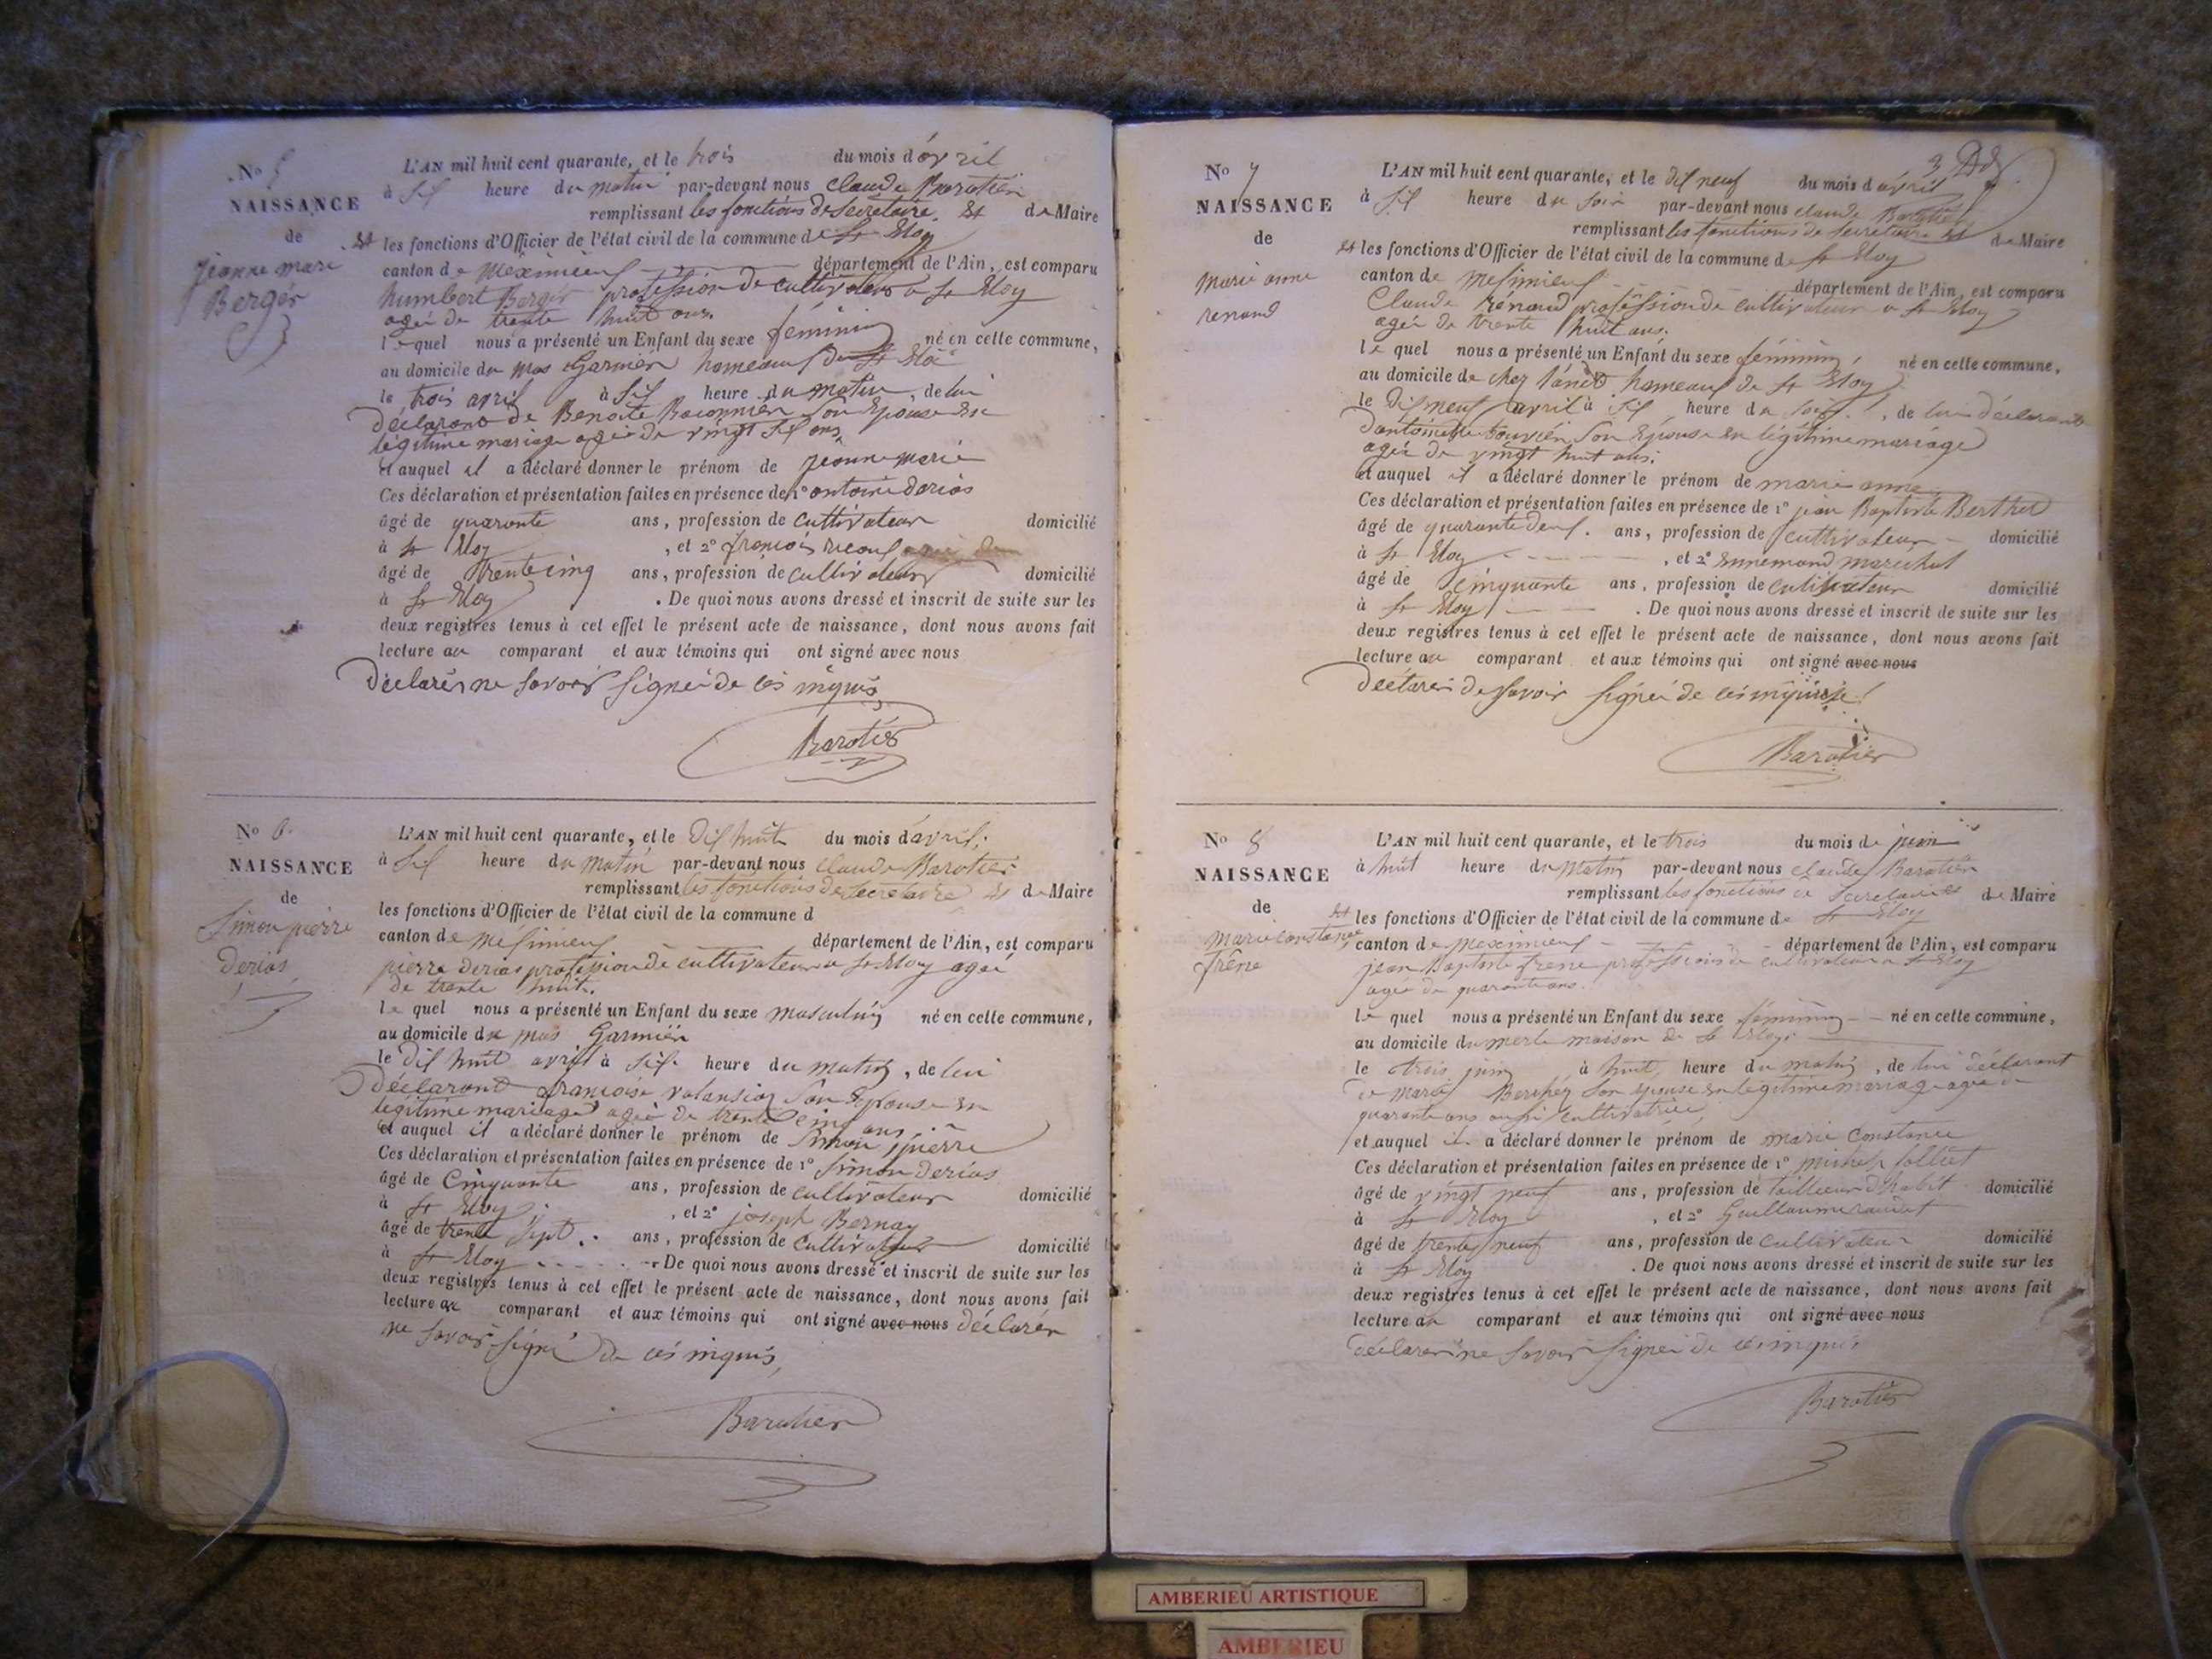 No 5
NAISSANCE
de
jeanne marie
Berger
L'AN mil huit cent quarante, et le trois du mois d'avril
à sif heure du matin par-devant nous claude Barotier
remplissant les fonctions de secretaire et de Maire
et les fonctions d'Officier de l'état civil de la commune de St Eloy
canton de meximieuf département de l'Ain, est comparu
humbert Berger profession de cultivateur a St Eloy
ageé de trente huit ans
le quel nous a présenté un Enfant du sexe féminin né en cette commune,
au domicile du mas Garnier hameauf de St
le trois avril à sif heure du matin, de lui
déclarant de Benoite son épouse en
légitime mariage ageé de vingt sif ans
et auquel il a déclaré donner le prénom de jeanne marie
Ces déclaration et présentation faites en présence de 1º antoine derias
âgé de quarante ans, profession de cultivateur domicilié
à St Eloy, et 2º françois
âgé de trente cinq ans, profession de cultivateur domicilié
à St Eloy. De quoi nous avons dressé et inscrit de suite sur les
deux registres tenus à cet effet le présent acte de naissance, dont nous avons fait
lecture au comparant et aux témoins qui ont signé avec nous
déclarér ne savoir signeé de ces inquis
Barotier
No 6
NAISSANCE
de
Simon pierre
derias
L'AN mil huit cent quarante, et le dif huit du mois d'avril
à sif heure du matin par-devant nous claude Barotier
remplissant les fonctions de secretaire et de Maire
les fonctions d'Officier de l'état civil de la commune d
canton de mesimieuf département de l'Ain, est comparu
pierre derias profession de cultivateur a St Eloy ageé
de trente huit.
le quel nous a présenté un Enfant du sexe masculin né en cette commune,
au domicile du mas Garnier
le dif huit avril à sif heure du matin, de lui
déclarant françoise valansiot son épouse en
légitime mariage ageé de trente cinq ans
et auquel il a déclaré donner le prénom de Simon pierre
Ces déclaration et présentation faites en présence de 1º Simon derias
âgé de cinquante ans, profession de cultivateur domicilié
à St Eloy, et 2º joseph Bernay
âgé de trente sept ans, profession de cultivateur domicilié
à St Eloy. De quoi nous avons dressé et inscrit de suite sur les
deux registres tenus à cet effet le présent acte de naissance, dont nous avons fait
lecture au comparant et aux témoins qui ont signé avec nous déclarér
ne savoir signé de ces inquis,
Barotier
No 7
NAISSANCE
de
marie anne
renaud
L'AN mil huit cent quarante, et le dif neuf du mois d'avril
à sif heure du soir par-devant nous claude Barotier
remplissant les fonctions de secretaire et de Maire
et les fonctions d'Officier de l'état civil de la commune de St Eloy
canton de mesimieuf département de l'Ain, est comparu
Claude renaud profession de cultivateur a St Eloy
ageé de trente huit ans.
le quel nous a présenté un Enfant du sexe féminin, né en cette commune,
au domicile de chez hameauf de St Eloy
le dif neuf avril à sif heure du soir, de lui déclarant
dantoinette bouvier son épouse en légitime mariage
ageé de vingt huit ans.
et auquel il a déclaré donner le prénom de marie anne
Ces déclaration et présentation faites en présence de 1º jean Baptiste Berthet
âgé de quarante deuf. ans, profession de cultivateur domicilié
à St Eloy, et 2º ennemond marechal
âgé de cinquante ans, profession de cultivateur domicilié
à St Eloy. De quoi nous avons dressé et inscrit de suite sur les
deux registres tenus à cet effet le présent acte de naissance, dont nous avons fait
lecture au comparant et aux témoins qui ont signé avec nous
déclarér de savoir signeé de ces
Barotier
No 8
NAISSANCE
de
marie constance
frêne
L'AN mil huit cent quarante, et le trois du mois de juin
à huit heure du matin par-devant nous claude Barotier
remplissant les fonctions de secretaire et de Maire
et les fonctions d'Officier de l'état civil de la commune de St Eloy
canton de meximieuf département de l'Ain, est comparu
jean Baptiste frene profession de cultivateur a St Eloy
ageé de quarante ans.
le quel nous a présenté un Enfant du sexe féminin né en cette commune,
au domicile du merle maison de St Eloy
le trois juin à huit heure du matin, de lui déclarant
de marie son épouse en légitime mariage ageé de
quarante ans cultivatrice
et auquel il a déclaré donner le prénom de marie constance
Ces déclaration et présentation faites en présence de 1º michel
âgé de vingt neuf ans, profession de tailleur dhabit domicilié
à St Eloy, et 2º Guillaume
âgé de trente neuf ans, profession de cultivateur domicilié
à St Eloy. De quoi nous avons dressé et inscrit de suite sur les
deux registres tenus à cet effet le présent acte de naissance, dont nous avons fait
lecture au comparant et aux témoins qui ont signé avec nous
déclarer ne savoir signeé de ces inquis
Barotier
AMBERIEU ARTISTIQUE
AMBERIEU